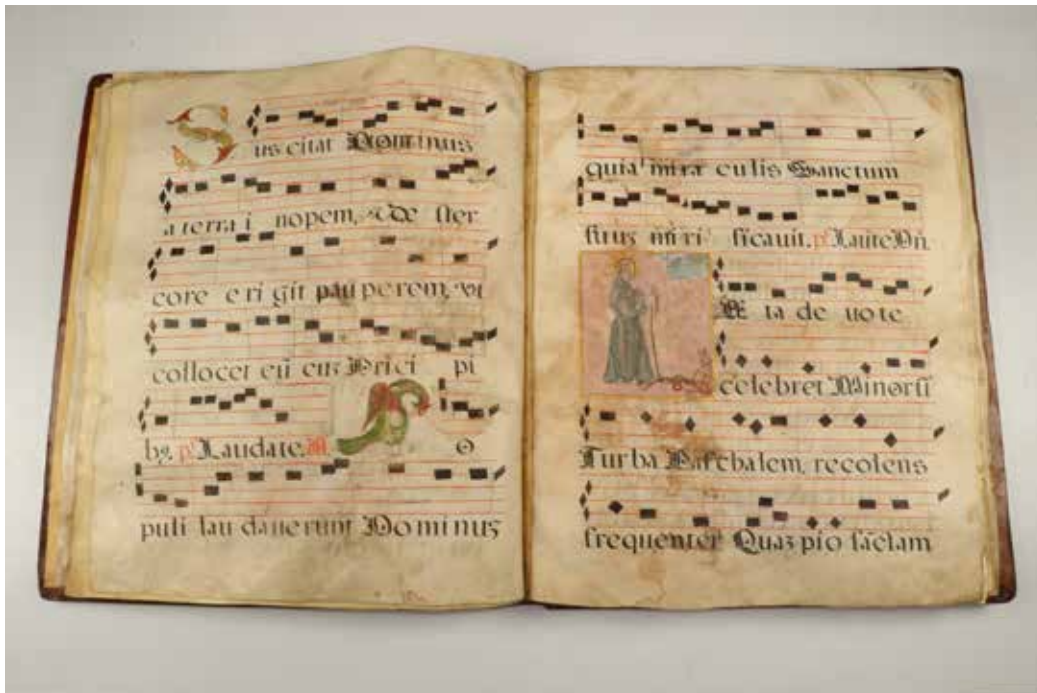 Sus citat Dominus
a terra i nopem, & de ster
core e ri git pau perem, vt
collocet eū cuȝ Prici pi
bꝰ. pˢ Laudate.
Po
puli lau dauerunt Dominus
quia mi ra culis Sanctum
suuȝ mi ri ficauit. pˢ Laute Dn̄.
L æ ta de uo te
celebret Minorū
Turba Paschalem, recolens
frequenter Quaȝ pio sāctam